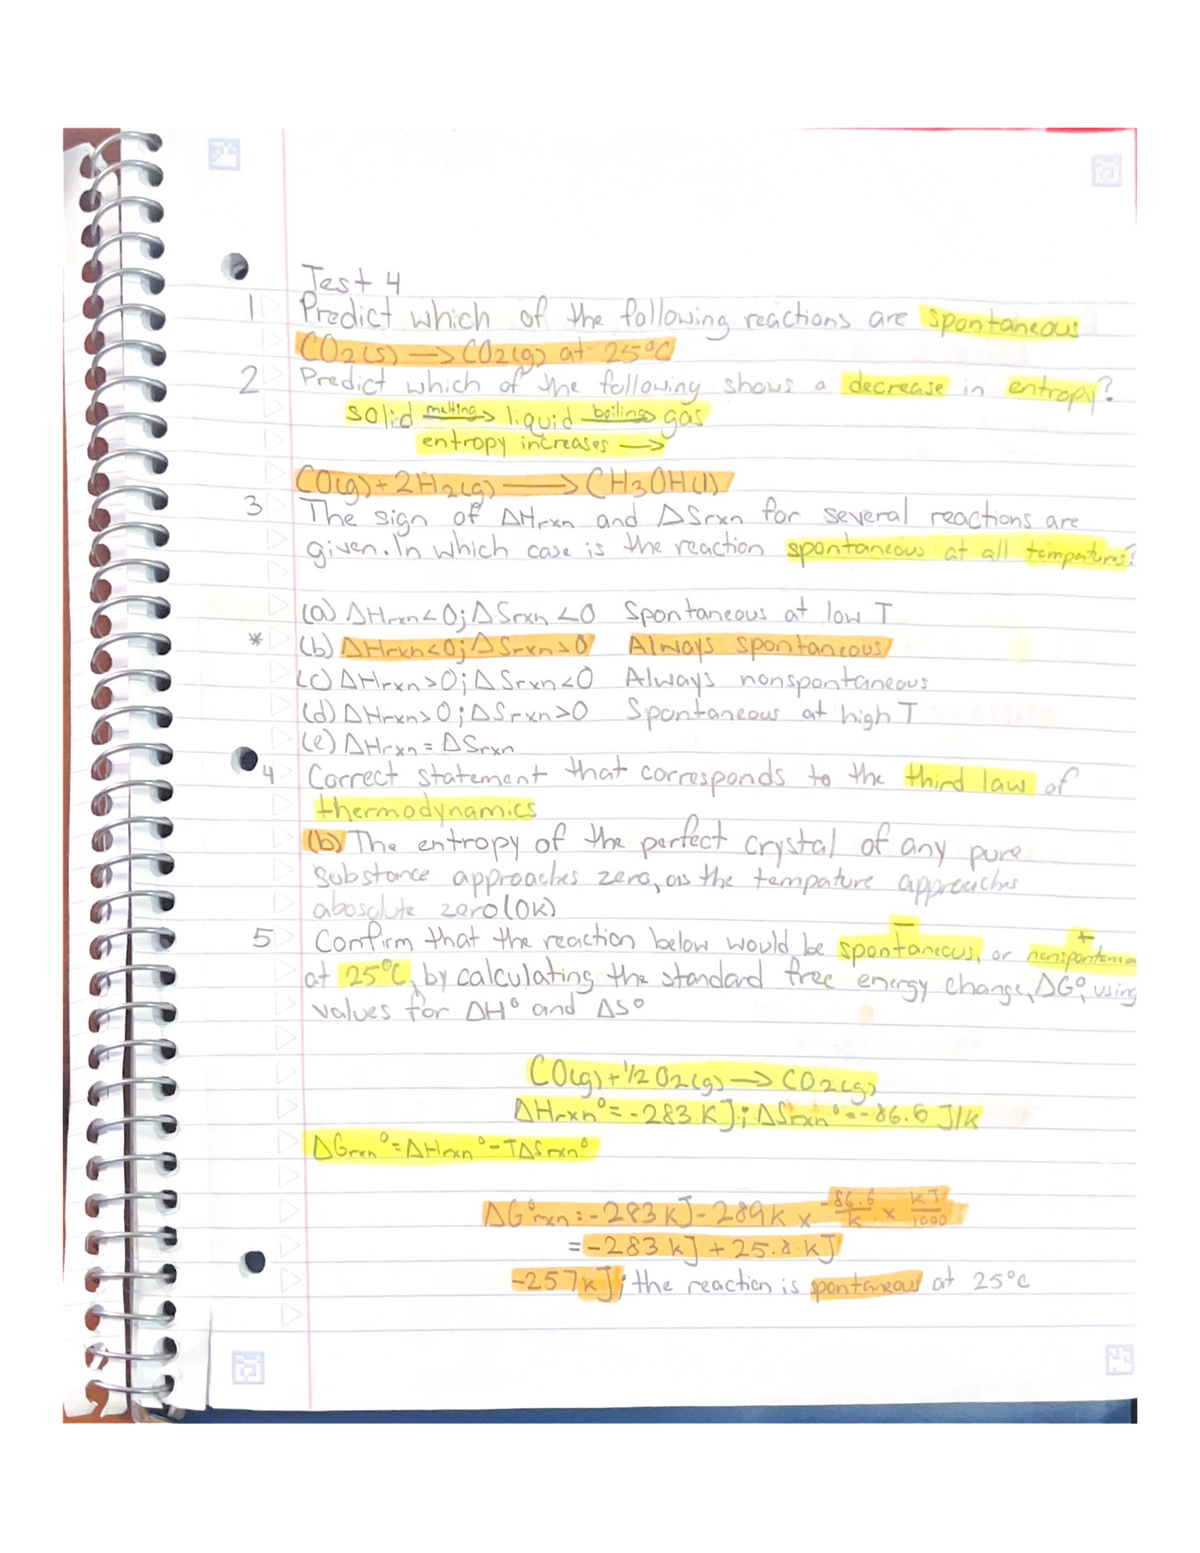 Test 4
1 Predict which of the following reactions are spontaneous
CO2(s) → CO2(g) at 25°C
2 Predict which of the following shows a decrease in entropy?
solid melting→ liquid boiling→ gas
entropy increases →
CO(g) + 2H2(g) → CH3OH(l)
3 The sign of ΔHrxn and ΔSrxn for several reactions are
given. In which case is the reaction spontaneous at all tempatures?
(a) ΔHrxn<0; ΔSrxn <0 Spontaneous at low T
* (b) ΔHrxn<0; ΔSrxn>0 Always spontaneous
(c) ΔHrxn>0; ΔSrxn<0 Always nonspontaneous
(d) ΔHrxn>0; ΔSrxn>0 Spontaneous at high T
(e) ΔHrxn = ΔSrxn
4 Correct statement that corresponds to the third law of
thermodynamics
(b) The entropy of the perfect crystal of any pure
substance approaches zero, as the tempature approaches
abosolute zero (0K)
− +
5 Confirm that the reaction below would be spontaneous, or nonspontaneous
at 25°C, by calculating the standard free energy change, ΔG°, using
values for ΔH° and ΔS°
CO(g) + 1/2 O2(g) → CO2(g)
ΔHrxn° = -283 KJ; ΔSrxn° = -86.6 J/K
ΔGrxn° = ΔHrxn° - TΔSrxn°
ΔG°rxn = -283 kJ - 289K x -86.6/K x kJ/1000
= -283 kJ + 25.8 kJ
-257kJ; the reaction is spontaneous at 25°C